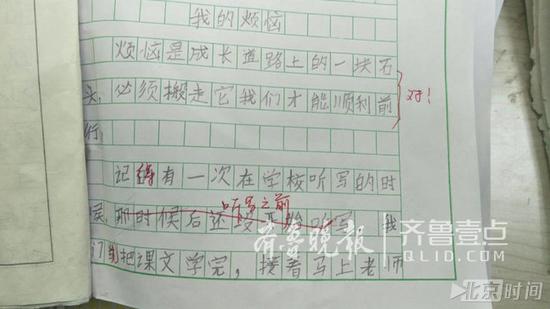 我的烦恼
烦恼是成长道路上的一块石
头,必须搬走它我们才能顺利前
对!
行。
记得有一次在学校听写的时
听写之前
候那时候后还没开始听写 我
们刚把课文学完,接着马上老师
齐鲁晚报 齐鲁壹点
QLID.COM
北京时间